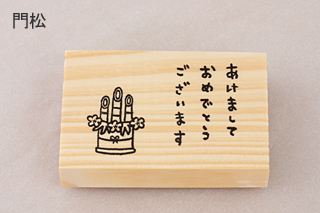 門松
あけまして
おめでとう
ございます